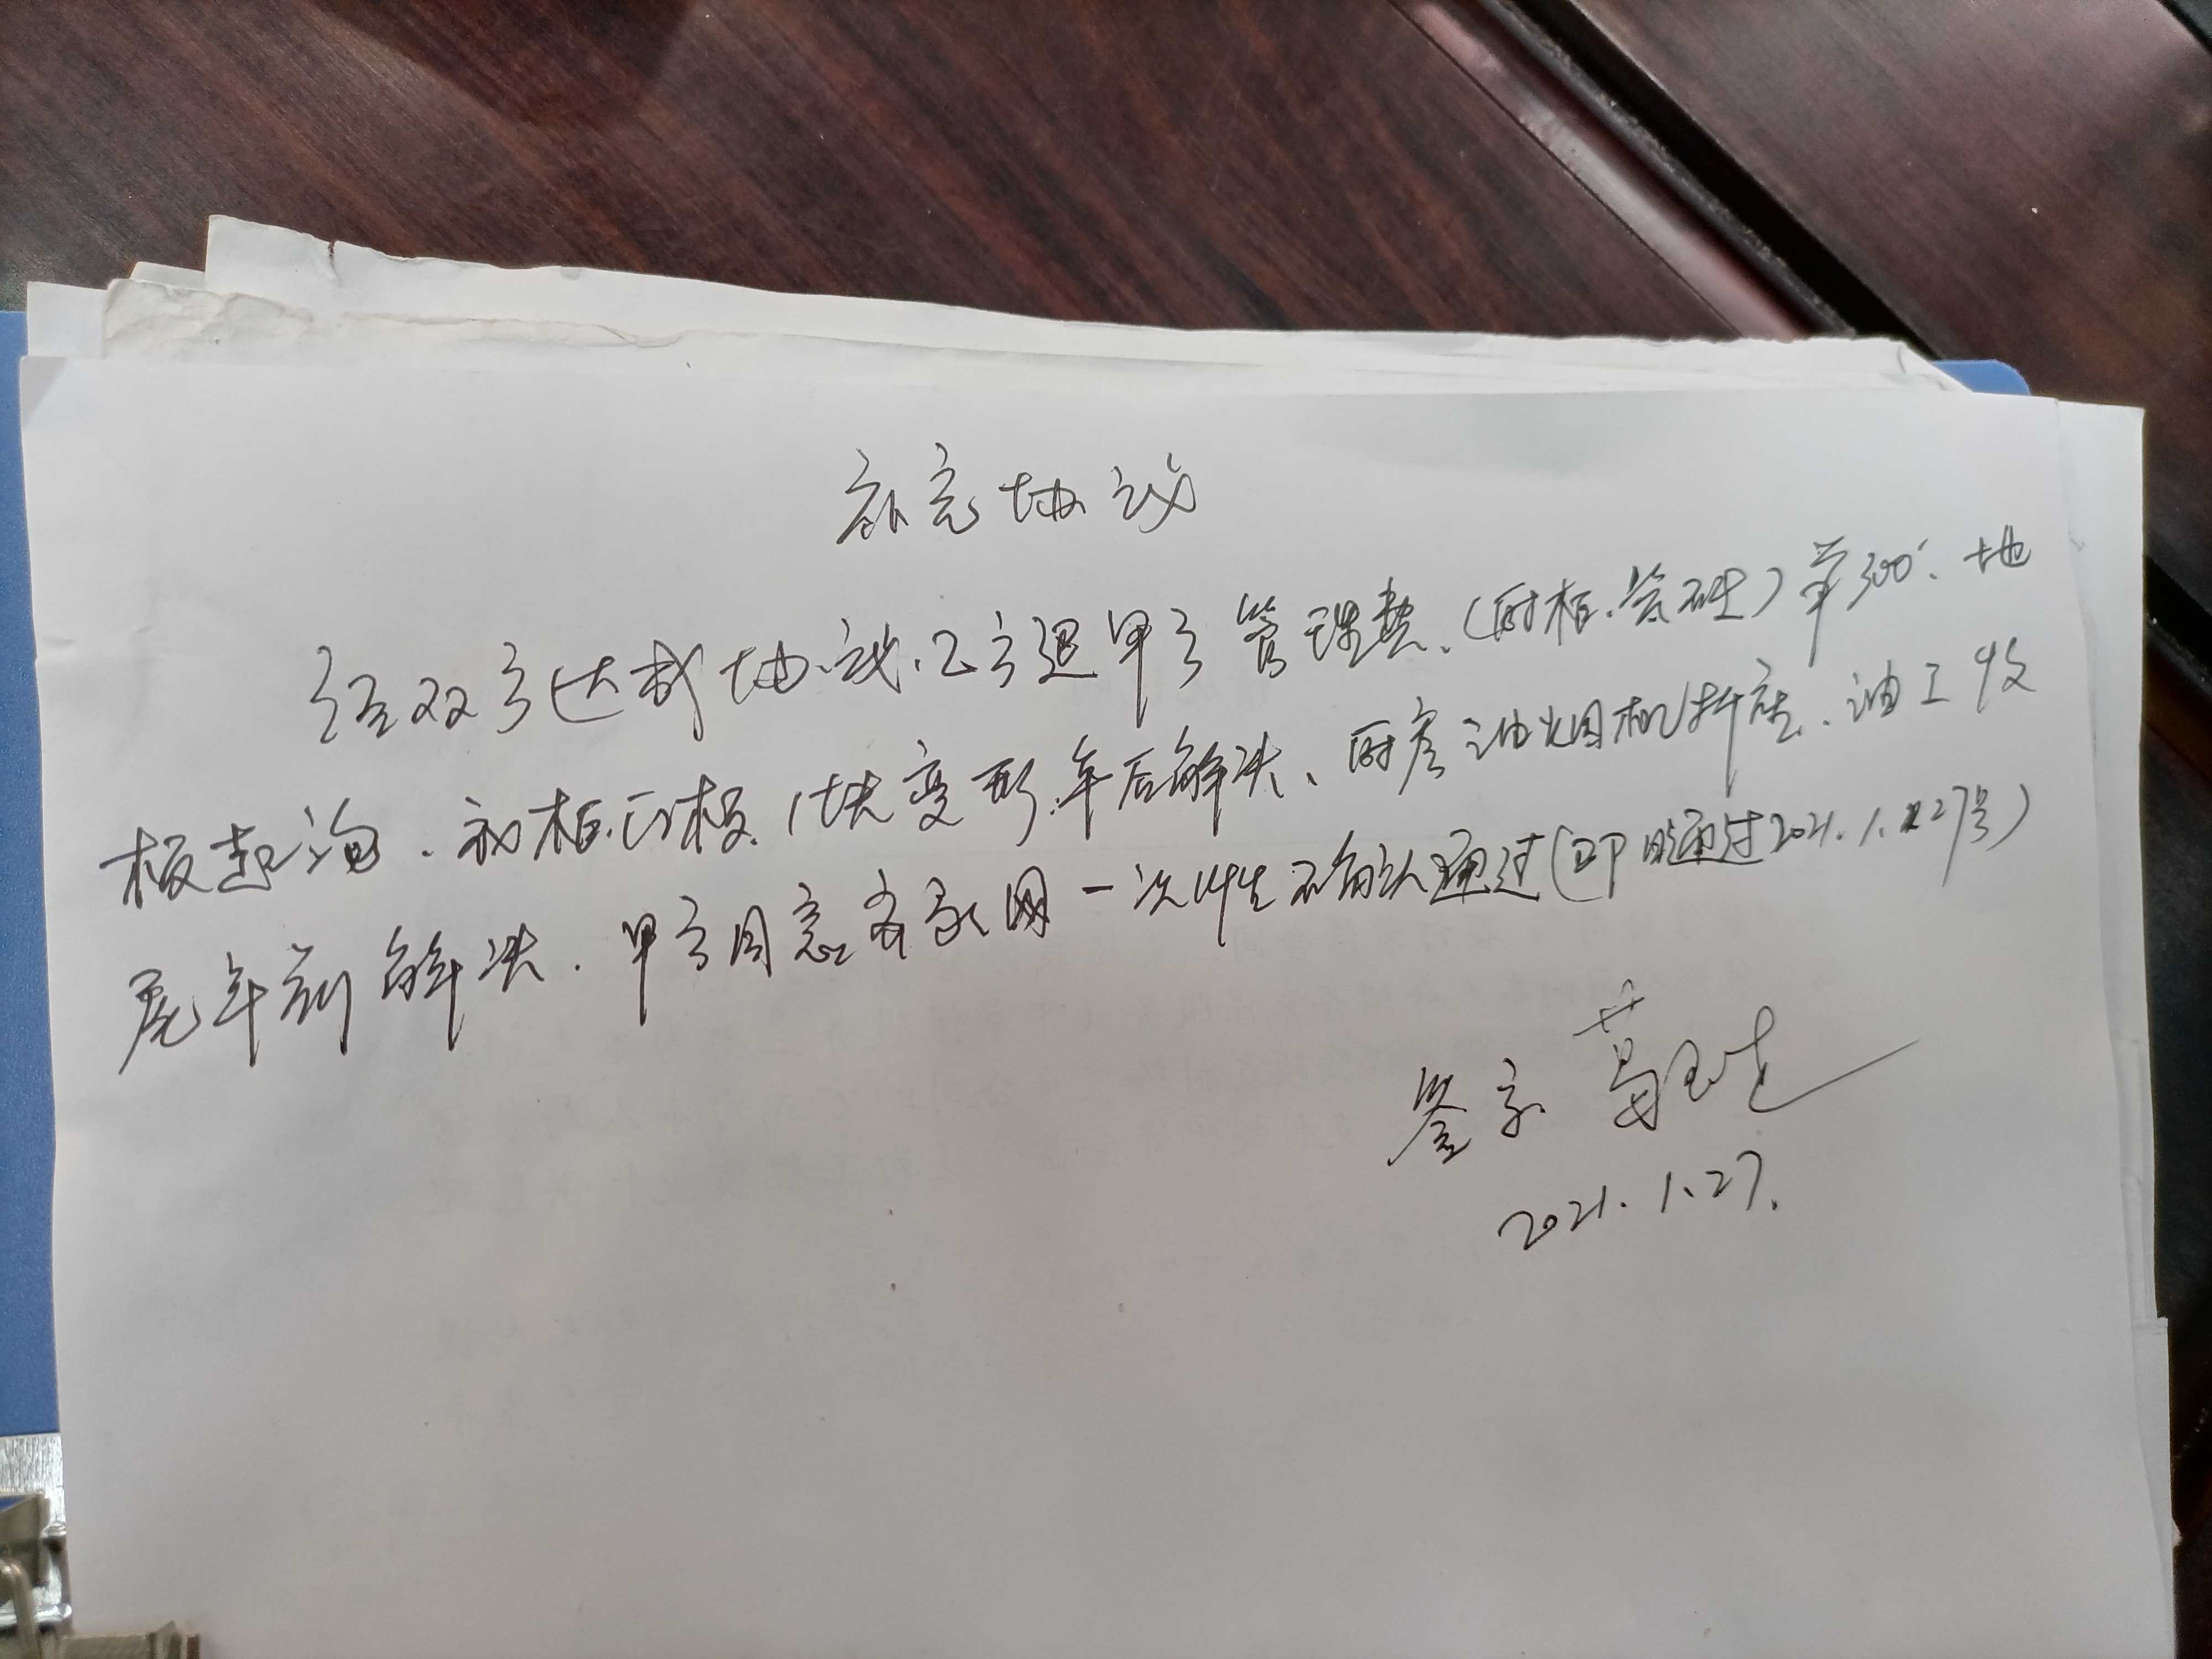 补充协议
经双方达成协议,乙方退甲方管理费、(厨柜、瓷砖)单300、地
板起泡、初柜门板、1块变形、年后解决、厨房油烟机拆装、油工收
尾年前解决、甲方同意齐家网一次性确认通过(即日通过2021.1.27号)
签字
2021.1.27.